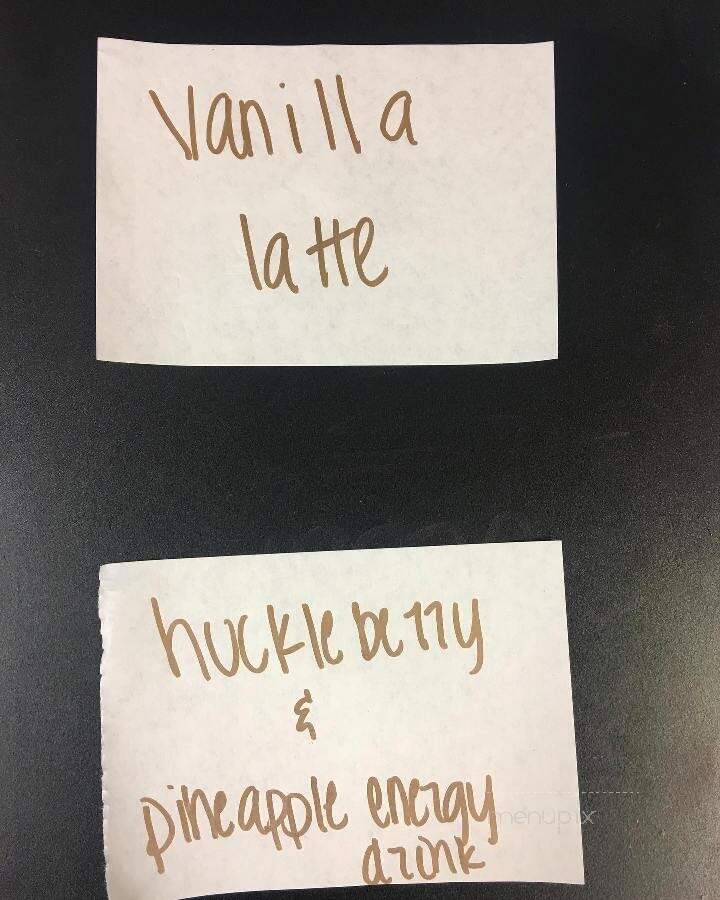 Vanilla
latte
huckleberry
&
pineapple energy
drink
menupix